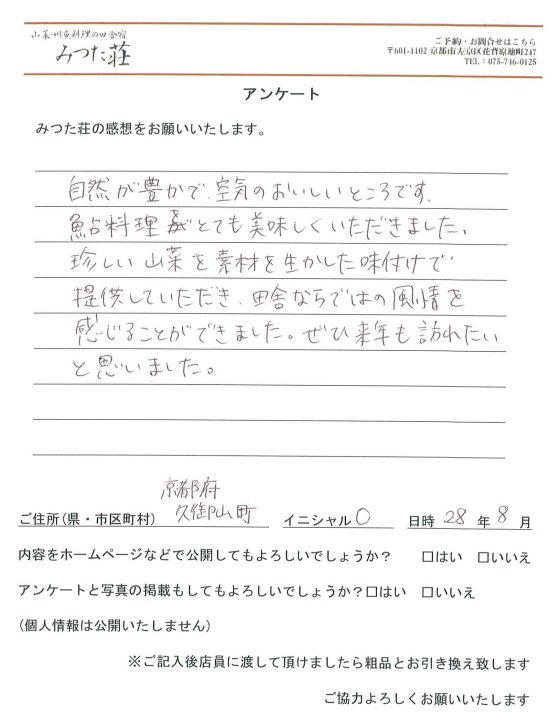 山菜・川魚料理の田舎宿
みつた荘
ご予約・お問合せはこちら
〒601-1102 京都市左京区花背原地町247
TEL：075-746-0125
アンケート
みつた荘の感想をお願いいたします。
自然が豊かで、空気のおいしいところです。
鮎料理がとても美味しくいただきました。
珍しい山菜を素材を生かした味付けで
提供していただき、田舎ならではの風情を
感じることができました。ぜひ来年も訪れたい
と思いました。
京都府
久御山町
ご住所(県・市区町村) イニシャル O 日時 28 年 8 月
内容をホームページなどで公開してもよろしいでしょうか？ □はい □いいえ
アンケートと写真の掲載もしてもよろしいでしょうか？□はい □いいえ
(個人情報は公開いたしません)
※ご記入後店員に渡して頂けましたら粗品とお引き換え致します
ご協力よろしくお願いいたします